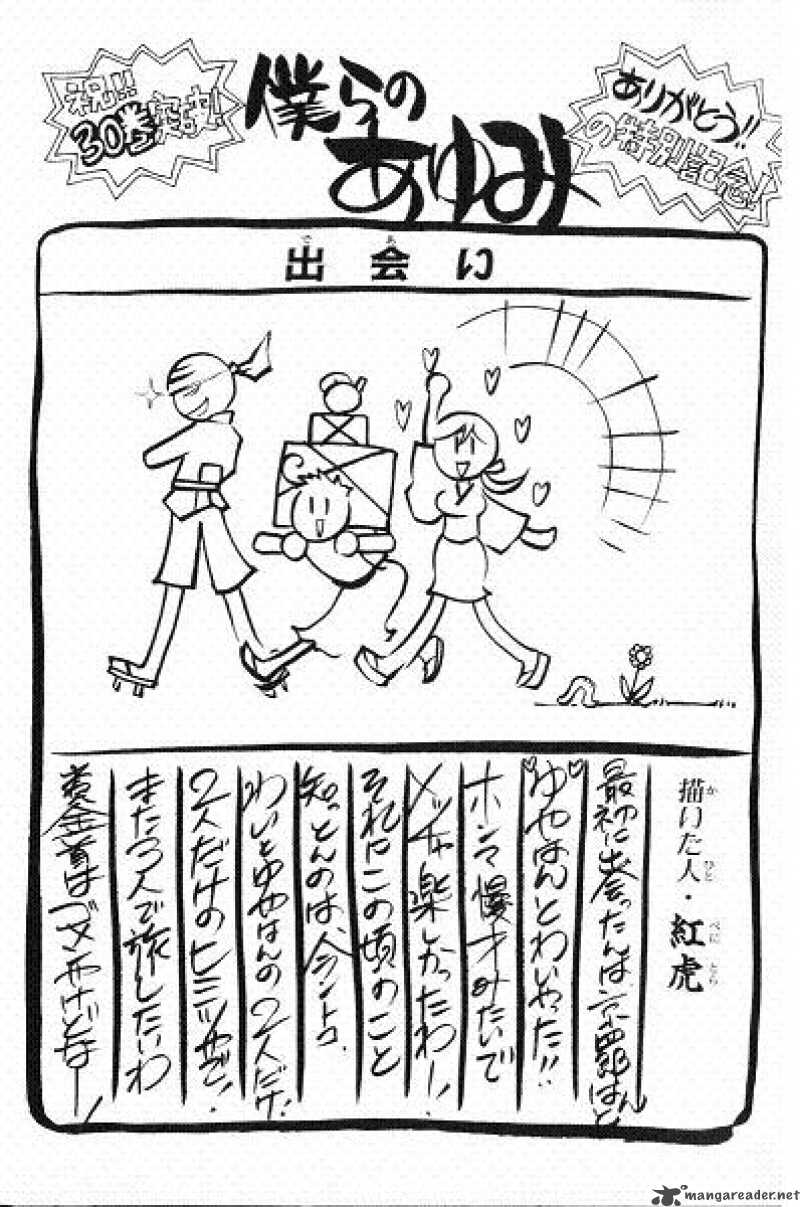 祝!!
30巻突破!
僕らの
あゆみ
ありがとう!!
の特別記念!
出会い
描いた人・紅虎
最初に出会ったんは、京四郎はんと
ゆやはんとわいやった!!
ホンマ慢才みたいで
メッチャ楽しかったわー!
それにこの頃のこと
知っとんのは、今ントコ、
わいとゆやはんの2人だけ!
2人だけのヒミツやで!
また3人で旅したいわ
賞金首はゴメンやけどなー!
mangareader.net